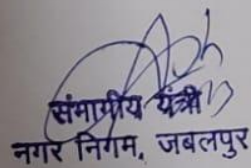 संभागीय यंत्री
नगर निगम, जबलपुर